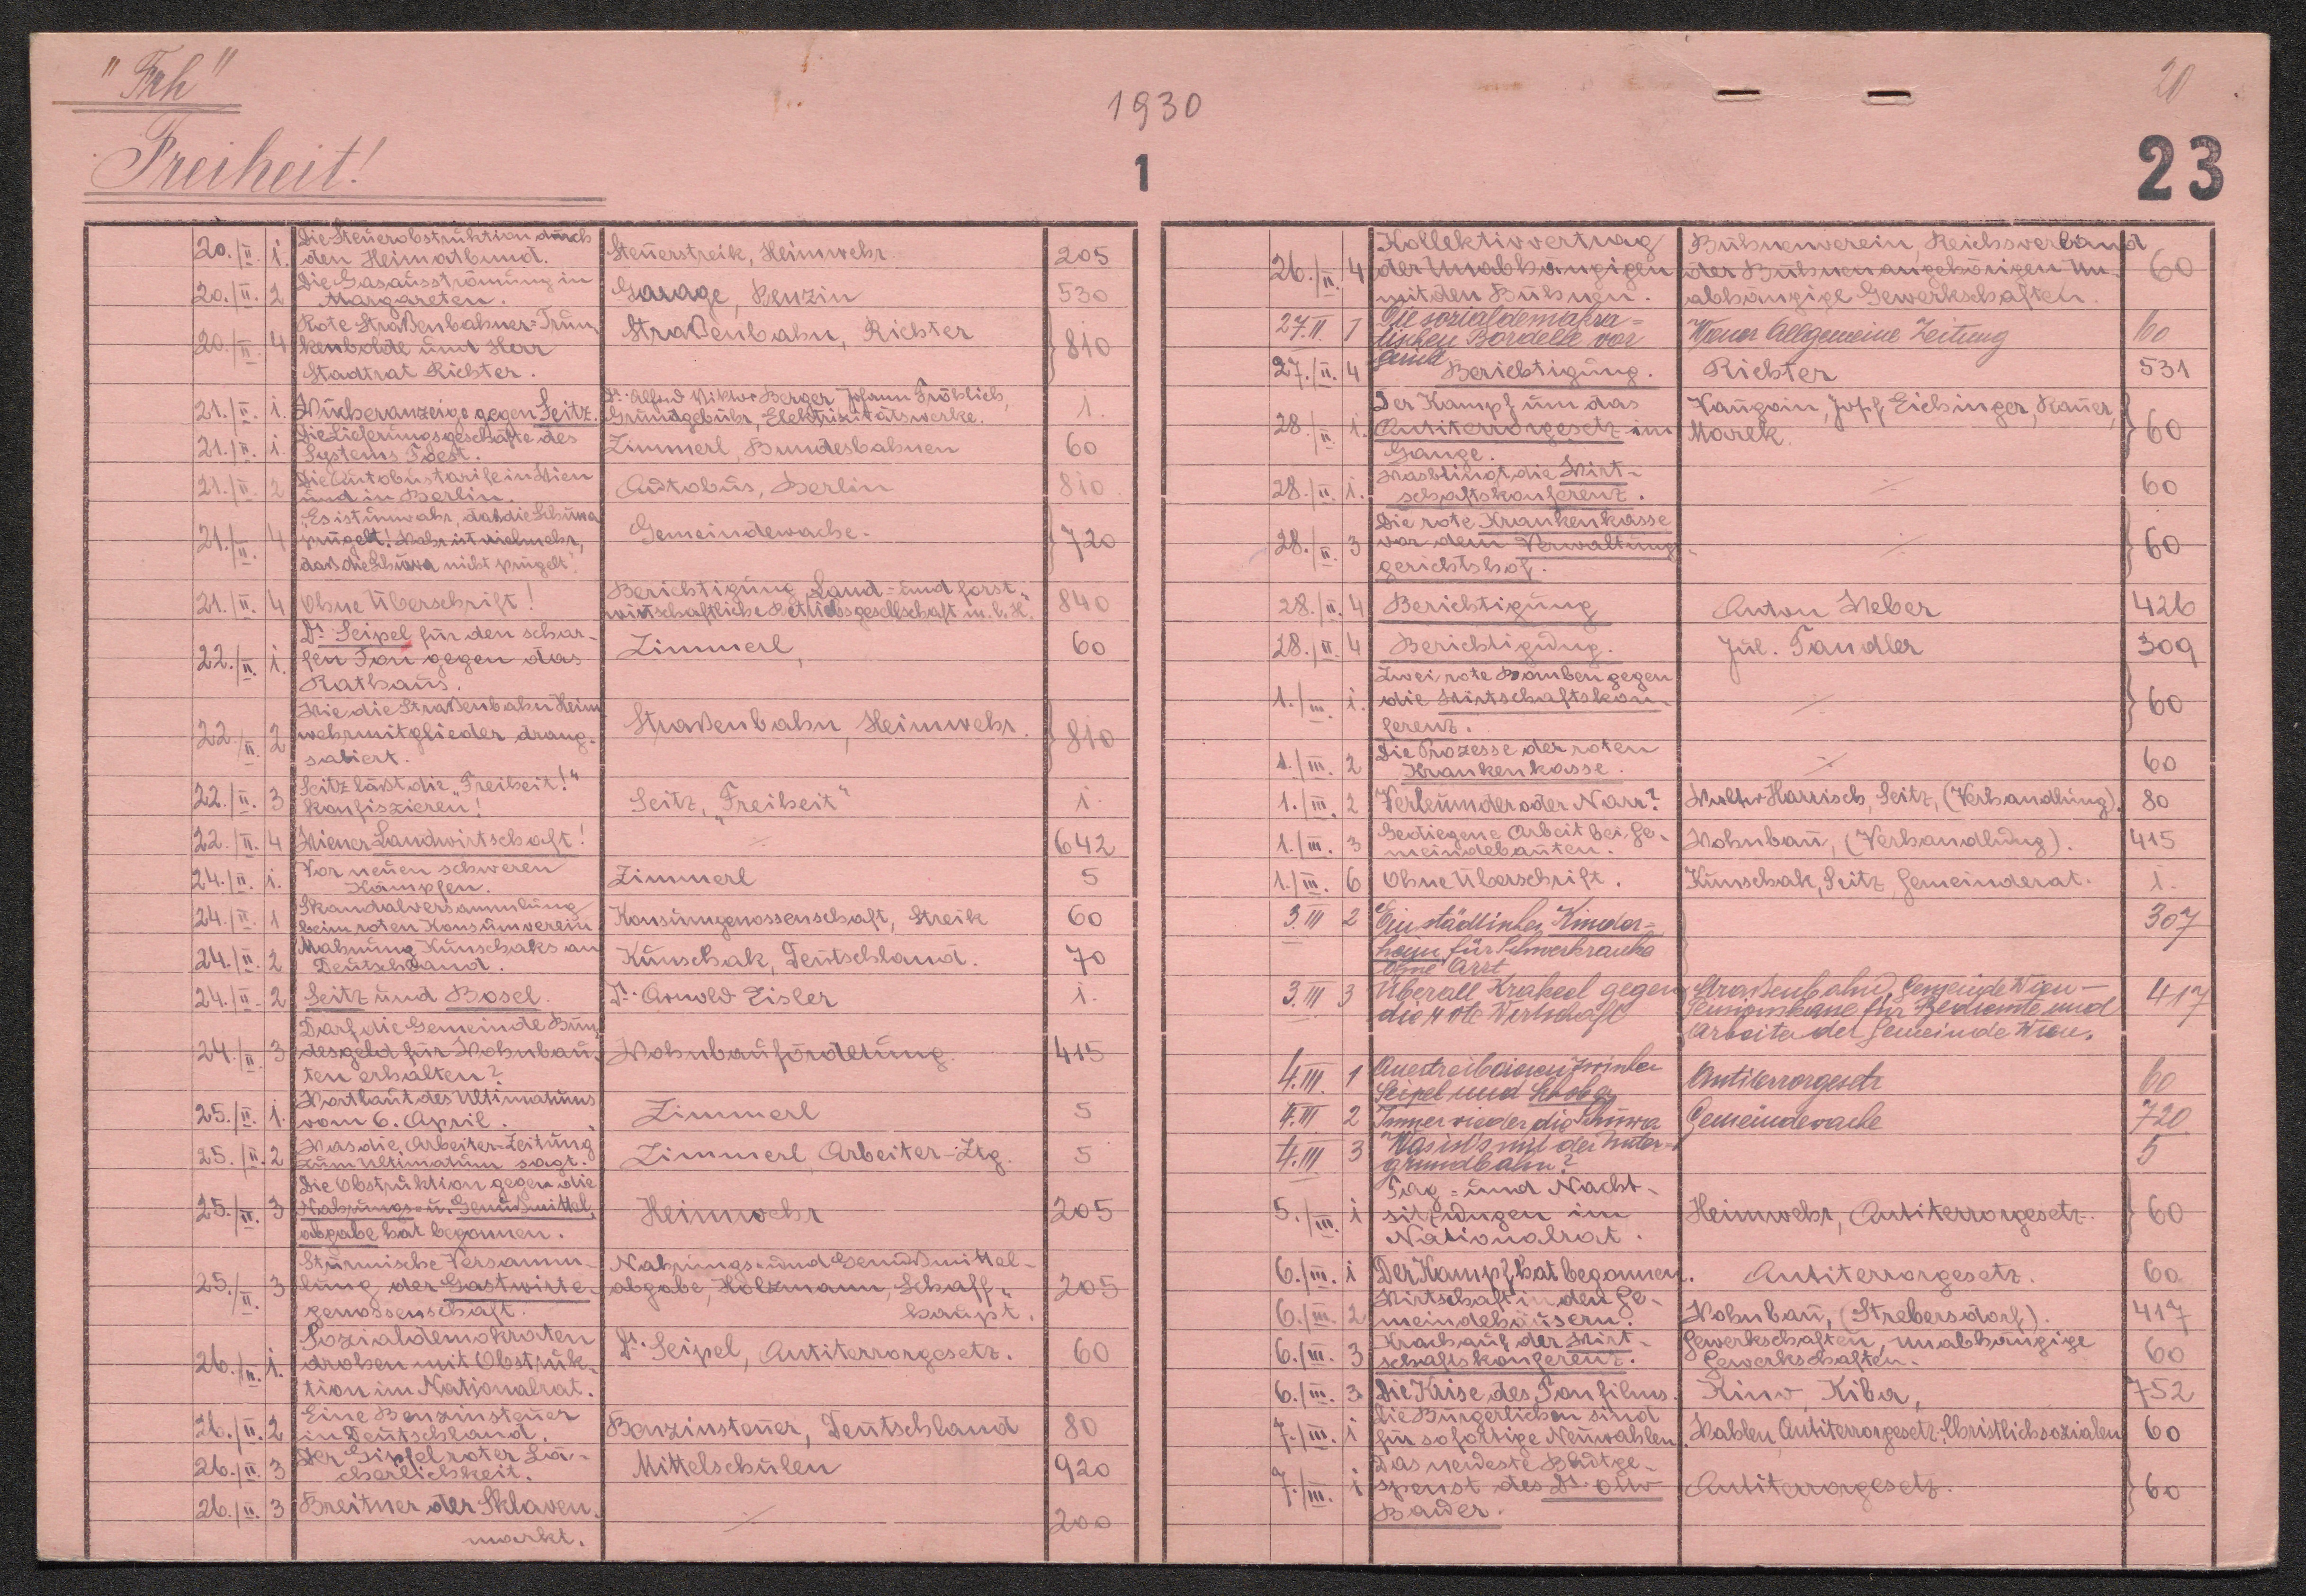 "Frh"
1930
20
Freiheit!
1
23
20./II. 1. Die Steuerobstruktion durch
den Heimatbund. Steuerstreik, Heimwehr. 205
20./II. 2 Die Gasausströmung in
Margareten. Garage, Benzin 530
20./II. 4 Rote Straßenbahner-Trun-
kenbolde und Herr
Stadtrat Richter. Straßenbahn, Richter 810
21./II. 1. Wucheranzeige gegen Seitz. Dr. Alfred Viktor Berger, Johann Fröhlich,
Grundgebühr, Elektrizitätswerke. 1.
21./II. 1. Die Lieferungsgeschäfte des
Systems Foest. Zimmerl, Bundesbahnen 60
21./II. 2 Die Autobustarife in Wien
und in Berlin. Autobus, Berlin 810
21./II. 4 "Es ist unwahr, daß die Schuwa
prügelt! Wahr ist vielmehr,
daß die Schuwa nicht prügelt!" Gemeindewache. 720
21./II. 4 Ohne Überschrift! Berichtigung, Land- und forst-
wirtschaftliche Betriebsgesellschaft m.b.H. 840
22./II. 1. Dr. Seipel für den schar-
fen Ton gegen das
Rathaus. Zimmerl, 60
22./II. 2 Wie die Straßenbahn Heim-
wehrmitglieder drang-
saliert. Straßenbahn, Heimwehr. 810
22./II. 3 Seitz läßt die "Freiheit!"
konfiszieren! Seitz, "Freiheit" 1.
22./II. 4 Wiener Landwirtschaft! ./. 642
24./II. 1. Vor neuen schweren
Kämpfen. Zimmerl 5
24./II. 1 Skandalversammlung
beim roten Konsumverein Konsumgenossenschaft, Streik 60
24./II. 2 Mahnung Kunschaks an
Deutschland. Kunschak, Deutschland. 70
24./II. 2 Seitz und Bosel. Dr. Arnold Eisler 1.
24./II. 3 Darf die Gemeinde Bun-
desgeld für Wohnbau-
ten erhalten? Wohnbauförderung. 415
25./II. 1. Wortlaut des Ultimatums
vom 6. April. Zimmerl 5
25./II. 2 Was die "Arbeiter-Zeitung"
zum Ultimatum sagt. Zimmerl, Arbeiter-Ztg. 5
25./II. 3 Die Obstruktion gegen die
Nahrungs- u. Genußmittel-
abgabe hat begonnen. Heimwehr 205
25./II. 3 Stürmische Versamm-
lung der Gastwirte-
genossenschaft. Nahrungs- und Genußmittel-
abgabe, Holzmann, Schaff-
haupt. 205
26./II. 1. Sozialdemokraten
drohen mit Obstruk-
tion im Nationalrat. Dr. Seipel, Antiterrorgesetz. 60
26./II. 2 Eine Benzinsteuer
in Deutschland. Benzinsteuer, Deutschland 80
26./II. 3 Der Gipfel roter Lä-
cherlichkeit. Mittelschulen 920
26./II. 3 Breitner der Sklaven-
markt. ./. 200
26./II. 4 Kollektivvertrag
der Unabhängigen
mit den Bühnen. Bühnenverein, Reichsverband
der Bühnenangehörigen Un-
abhängige Gewerkschaften. 60
27.II. 1 Die sozialdemokra-
tischen Bordelle vor
Gericht Wiener Allgemeine Zeitung 60
27./II. 4 Berichtigung. Richter 531
28./II. 1. Der Kampf um das
Antiterrorgesetz im
Gange. Vaugoin, Josef Eichinger, Rauer,
Marek. 60
28./II. 1. Was bringt die Wirt-
schaftskonferenz. ./. 60
28./II. 3 Die rote Krankenkasse
vor dem Verwaltungs-
gerichtshof. ./. 60
28./II. 4 Berichtigung Anton Weber 426
28./II. 4 Berichtigung. Jul. Tandler 309
1./III. 1. Zwei rote Bomben gegen
die Wirtschaftskon-
ferenz. ./. 60
1./III. 2 Die Prozesse der roten
Krankenkasse. ./. 60
1./III. 2 Verleumder oder Narr? Walter Harrisch, Seitz, (Verhandlung). 80
1./III. 3 Gediegene Arbeit bei Ge-
meindebauten. Wohnbau, (Verhandlung). 415
1./III. 6 Ohne Überschrift. Kunschak, Seitz, Gemeinderat. 1.
3.III 2 Ein städtisches Kinder-
heim für Schwerkranke
ohne Arzt 307
3.III 3 Überall Krakeel gegen
die rote Wirtschaft Straßenbahn, Gemeinde Wien-
Pensionskasse für Bediente und
Arbeiter der Gemeinde Wien. 417
4.III 1 Quertreibereien zwischen
Seipel und Schober Antiterrorgesetz 60
4.III 2 Immer wieder die Schuwa Gemeindewache 720
4.III 3 Was ist's mit der Unter-
grundbahn? 5
5./III. 1 Tag- und Nacht-
sitzungen im
Nationalrat. Heimwehr, Antiterrorgesetz. 60
6./III. 1 Der Kampf hat begonnen. Antiterrorgesetz. 60
6./III. 2 Wirtschaft in den Ge-
meindehäusern. Wohnbau, (Strebersdorf). 417
6./III. 3 Krach auf der Wirt-
schaftskonferenz. Gewerkschaften, unabhängige
Gewerkschaften. 60
6./III. 3 Die Krise des Tonfilms. Kino, Kiba, 752
7./III. 1 Die Bürgerlichen sind
für sofortige Neuwahlen. Wahlen, Antiterrorgesetz, Christlichsozialen 60
7./III. 1 Das neueste Blutge-
spenst des Dr. Otto
Bauer. Antiterrorgesetz. 60